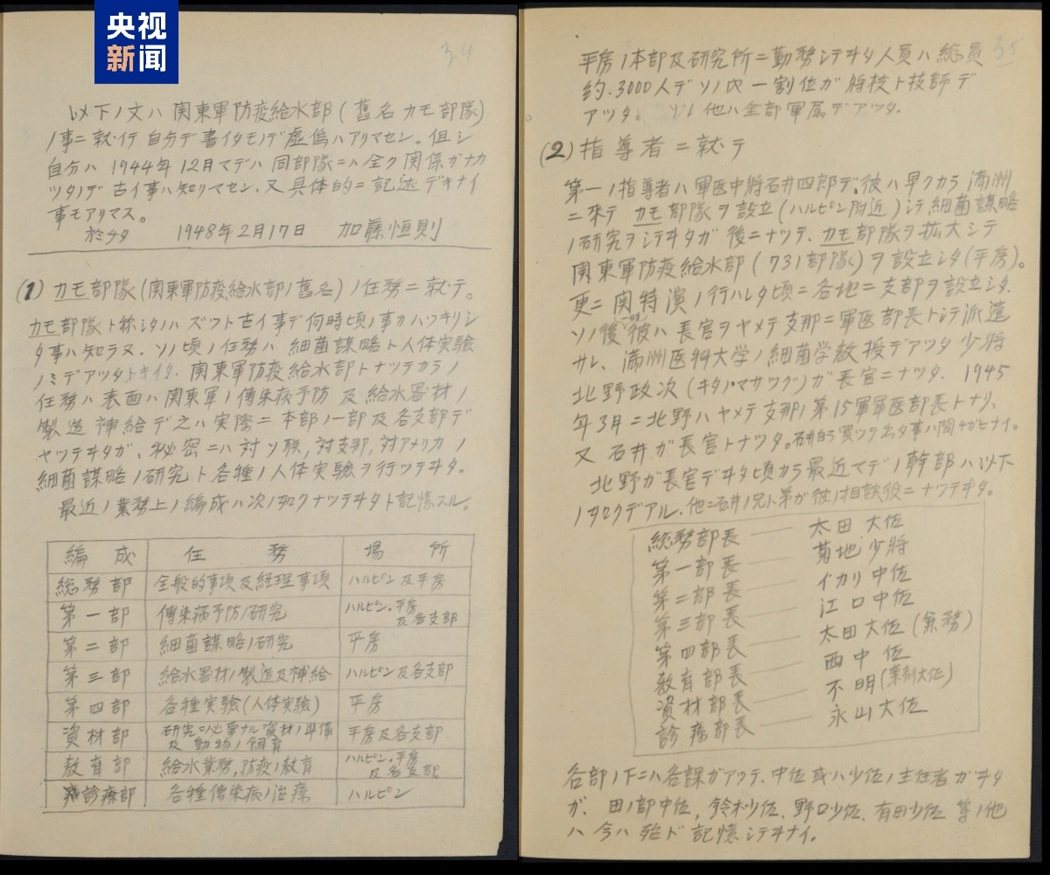 央视
新闻
34
以下ノ文ハ関東軍防疫給水部(舊名カモ部隊)
ノ事ニ就イテ自分デ書イタモノデ虚偽ハアリマセン。但シ
自分ハ1944年12月マデハ同部隊ニハ全ク関係ガナカ
ツタノデ古イ事ハ知リマセン.又具体的ニ記述デキナイ
事モアリマス。
於チタ 1948年2月17日 加藤恒則
(1) カモ部隊(関東軍防疫給水部ノ舊名)ノ任務ニ就テ。
カモ部隊ト称シタノハズツト古イ事デ何時頃ノ事カハツキリシ
タ事ハ知ラヌ.ソノ頃ノ任務ハ細菌謀略ト人体実験
ノミデアツタトキイタ.関東軍防疫給水部トナツテカラノ
任務ハ表面ハ関東軍ノ傳染病予防及給水器材ノ
製造補給デ之ハ実際ニ本部ノ一部及各支部デ
ヤツテヰタガ、秘密ニハ対ソ聯,対支那,対アメリカノ
細菌謀略ノ研究ト各種ノ人体実験ヲ行ツテヰタ。
最近ノ業務上ノ編成ハ次ノ如クナツテヰタト記憶スル。
編成 任務 場所
総務部 全般的事項及経理事項 ハルピン及平房
第一部 傳染病予防ノ研究 ハルピン.平房及各支部
第二部 細菌謀略ノ研究 平房
第三部 給水器材ノ製造及補給 ハルピン及各支部
第四部 各種実験(人体実験) 平房
資材部 研究ニ必要ナル資材ノ準備及動物ノ飼育 平房及各支部
教育部 給水業務,防疫ノ教育 ハルピン.平房及各支部
診療部 各種傳染病ノ治療 ハルピン
35
平房ノ本部及研究所ニ勤務シテヰタ人員ハ総員
約.3000人デソノ内一割位ガ将校ト技師デ
アツタ。ソノ他ハ全部軍属デアツタ.
(2) 指導者ニ就テ
第一ノ指導者ハ軍医中将石井四郎デ、彼ハ早クカラ満洲
ニ来テカモ部隊ヲ設立(ハルピン附近)シテ,細菌謀略
ノ研究ヲシテヰタガ後ニナツテ、カモ部隊ヲ拡大シテ
関東軍防疫給水部(731部隊)ヲ設立シタ(平房)。
更ニ関特演ノ行ハレタ頃ニ各地ニ支部ヲ設立シタ.
ソノ後彼ハ長官ヲヤメテ支那ニ軍医部長トシテ派遣
サレ、満洲医科大学ノ細菌学教授デアツタ少将
北野政次(キタノ・マサツグ)ガ長官ニナツタ. 1945
年3月ニ北野ハヤメテ支那ノ第15軍軍医部長トナリ、
又石井ガ長官トナツタ。
北野ガ長官デヰタ頃カラ最近マデノ幹部ハ以下
ノ如クデアル.他ニ石井ノ兄ト弟ガ彼ノ相談役ニナツテヰタ。
総務部長 太田大佐
第一部長 菊地少将
第二部長 イカリ中佐
第三部長 江口中佐
第四部長 太田大佐(兼務)
教育部長 西中佐
資材部長 不明(薬剤大佐)
診療部長 永山大佐
各部ノ下ニハ各課ガアツテ、中佐或ハ少佐ノ主任者ガヰタ
ガ、田ノ部中佐,鈴木少佐、野口少佐、有田少佐等ノ他
ハ今ハ殆ド記憶シテヰナイ。